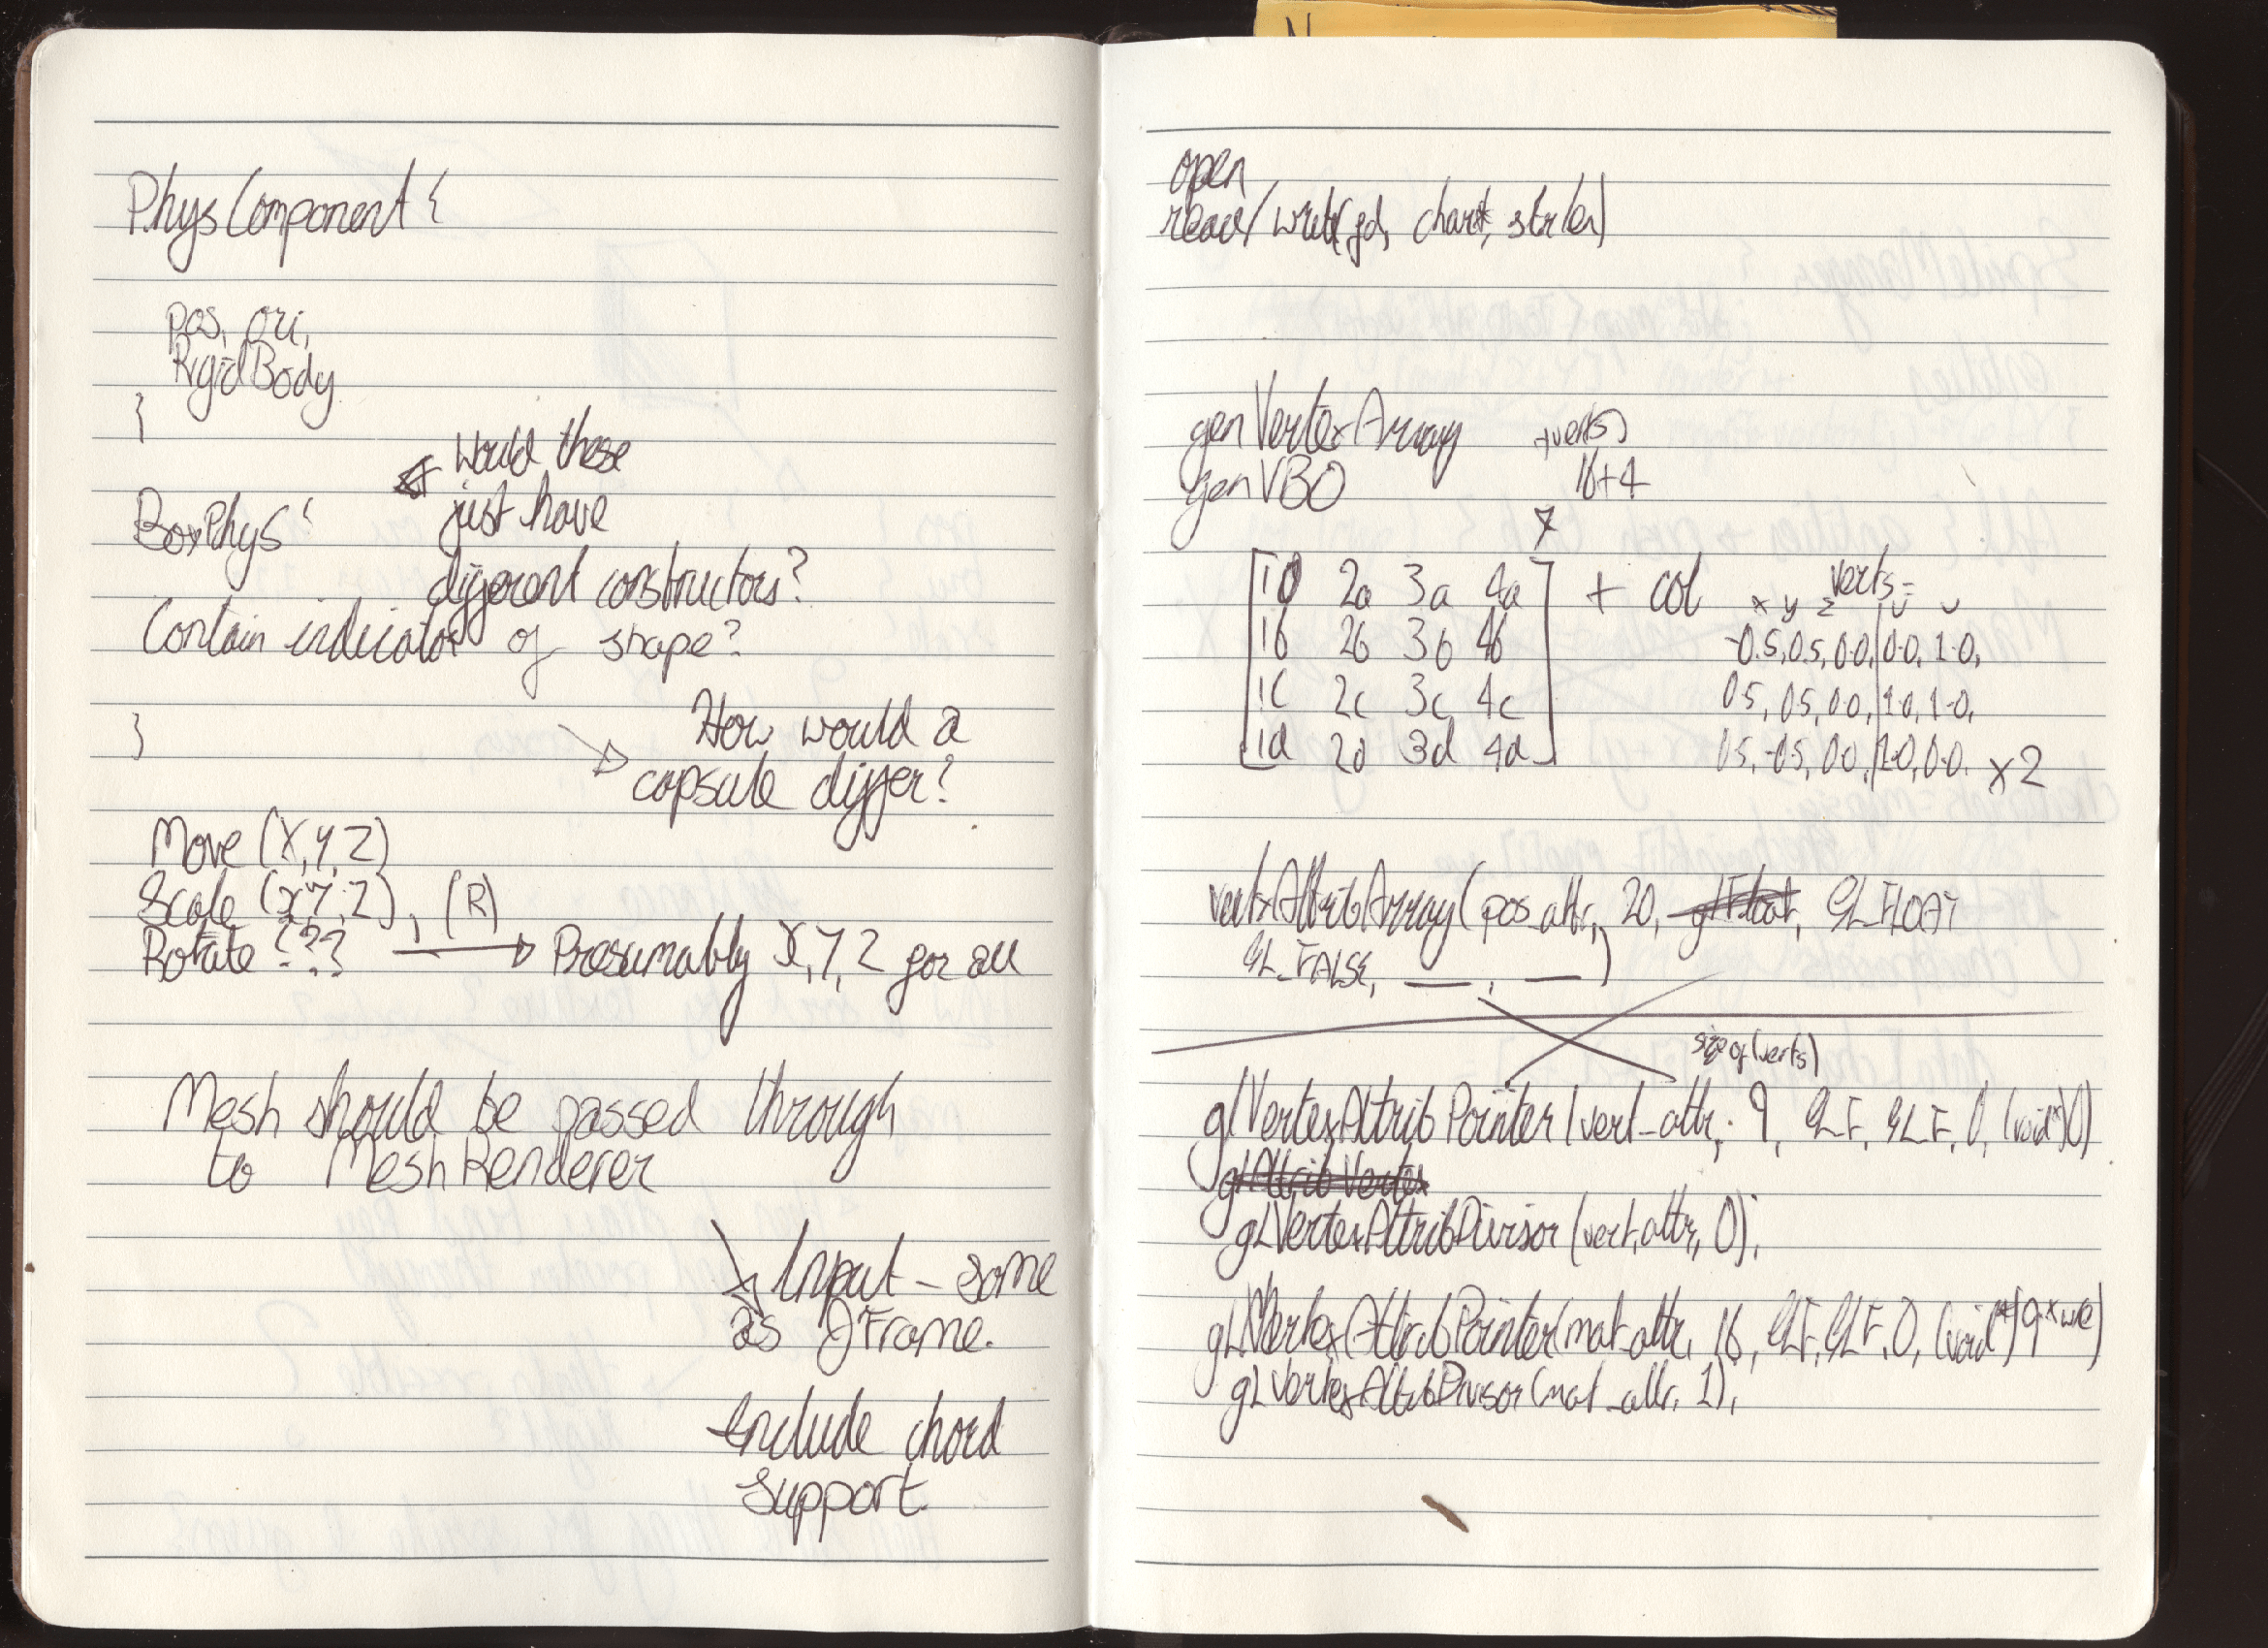 PhysComponent {
pos, ori,
RigidBody
}
Would these
just have
different constructors?
BoxPhys {
Contain indicator of shape?
}
How would a
capsule differ?
Move (X, Y, Z)
Scale (X, Y, Z), (R)
Rotate ??? → Presumably X, Y, Z for all
Mesh should be passed through
to MeshRenderer
Input - same
as JFrame.
Include chord
support.
open
read/write(fd, char*, strlen)
genVertexArray
genVBO
+verts)
16+4
[1a 2a 3a 4a] + col
1b 2b 3b 4b
1c 2c 3c 4c
1d 2d 3d 4d
verts=
x y z u v
-0.5, 0.5, 0.0, 0.0, 1.0,
0.5, 0.5, 0.0, 1.0, 1.0,
0.5, -0.5, 0.0, 1.0, 0.0. x2
vertexAttribArray(pos_attr, 20, glFloat, GL_FLOAT
GL_FALSE, __, __)
sizeof(verts)
glVertexAttribPointer(vert_attr, 9, GLF, GLF, 0, (void*)0)
glAttribVertex
glVertexAttribDivisor(vert_attr, 0);
glVertexAttribPointer(mat_attr, 16, GLF, GLF, 0, (void*)9*
glVertexAttribDivisor(mat_attr, 1);